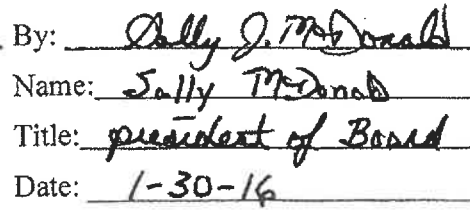 By: Sally J. McDonald
Name: Sally McDonald
Title: president of Board
Date: 1-30-16